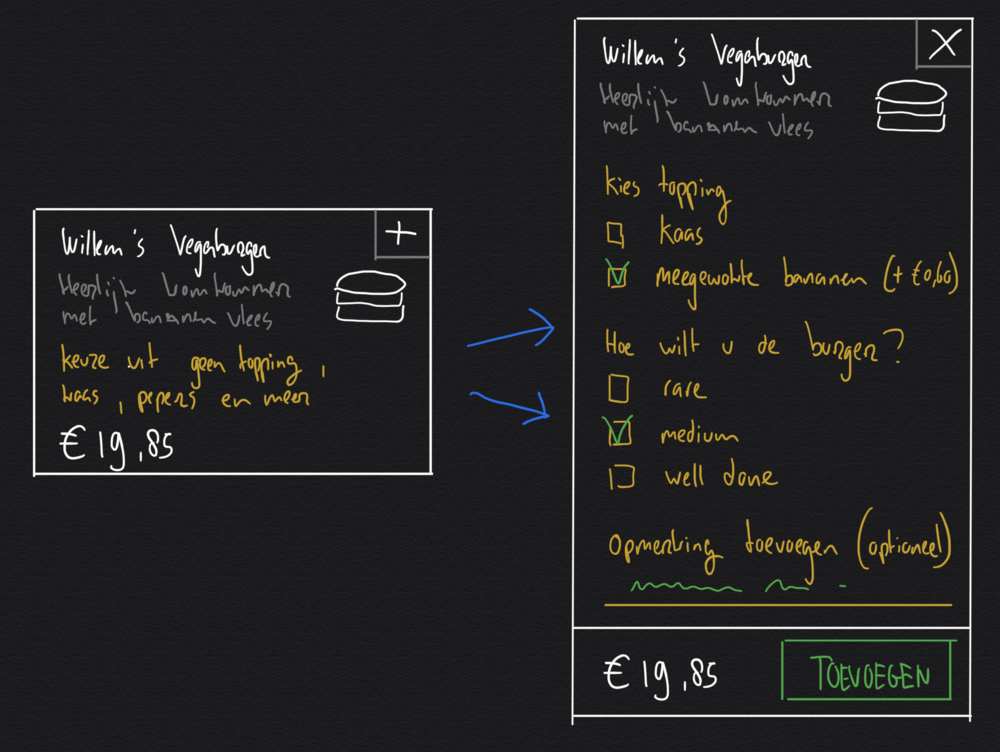 Willem's Vegaburger
+
Heerlijk komkommer
met bananen vlees
keuze uit geen topping,
kaas, pepers en meer
€ 19,85
Willem's Vegaburger
X
Heerlijk komkommer
met bananen vlees
kies topping
kaas
meegewokte bananen (+ €0,60)
Hoe wilt u de burger?
rare
medium
well done
Opmerking toevoegen (optioneel)
€ 19,85
TOEVOEGEN